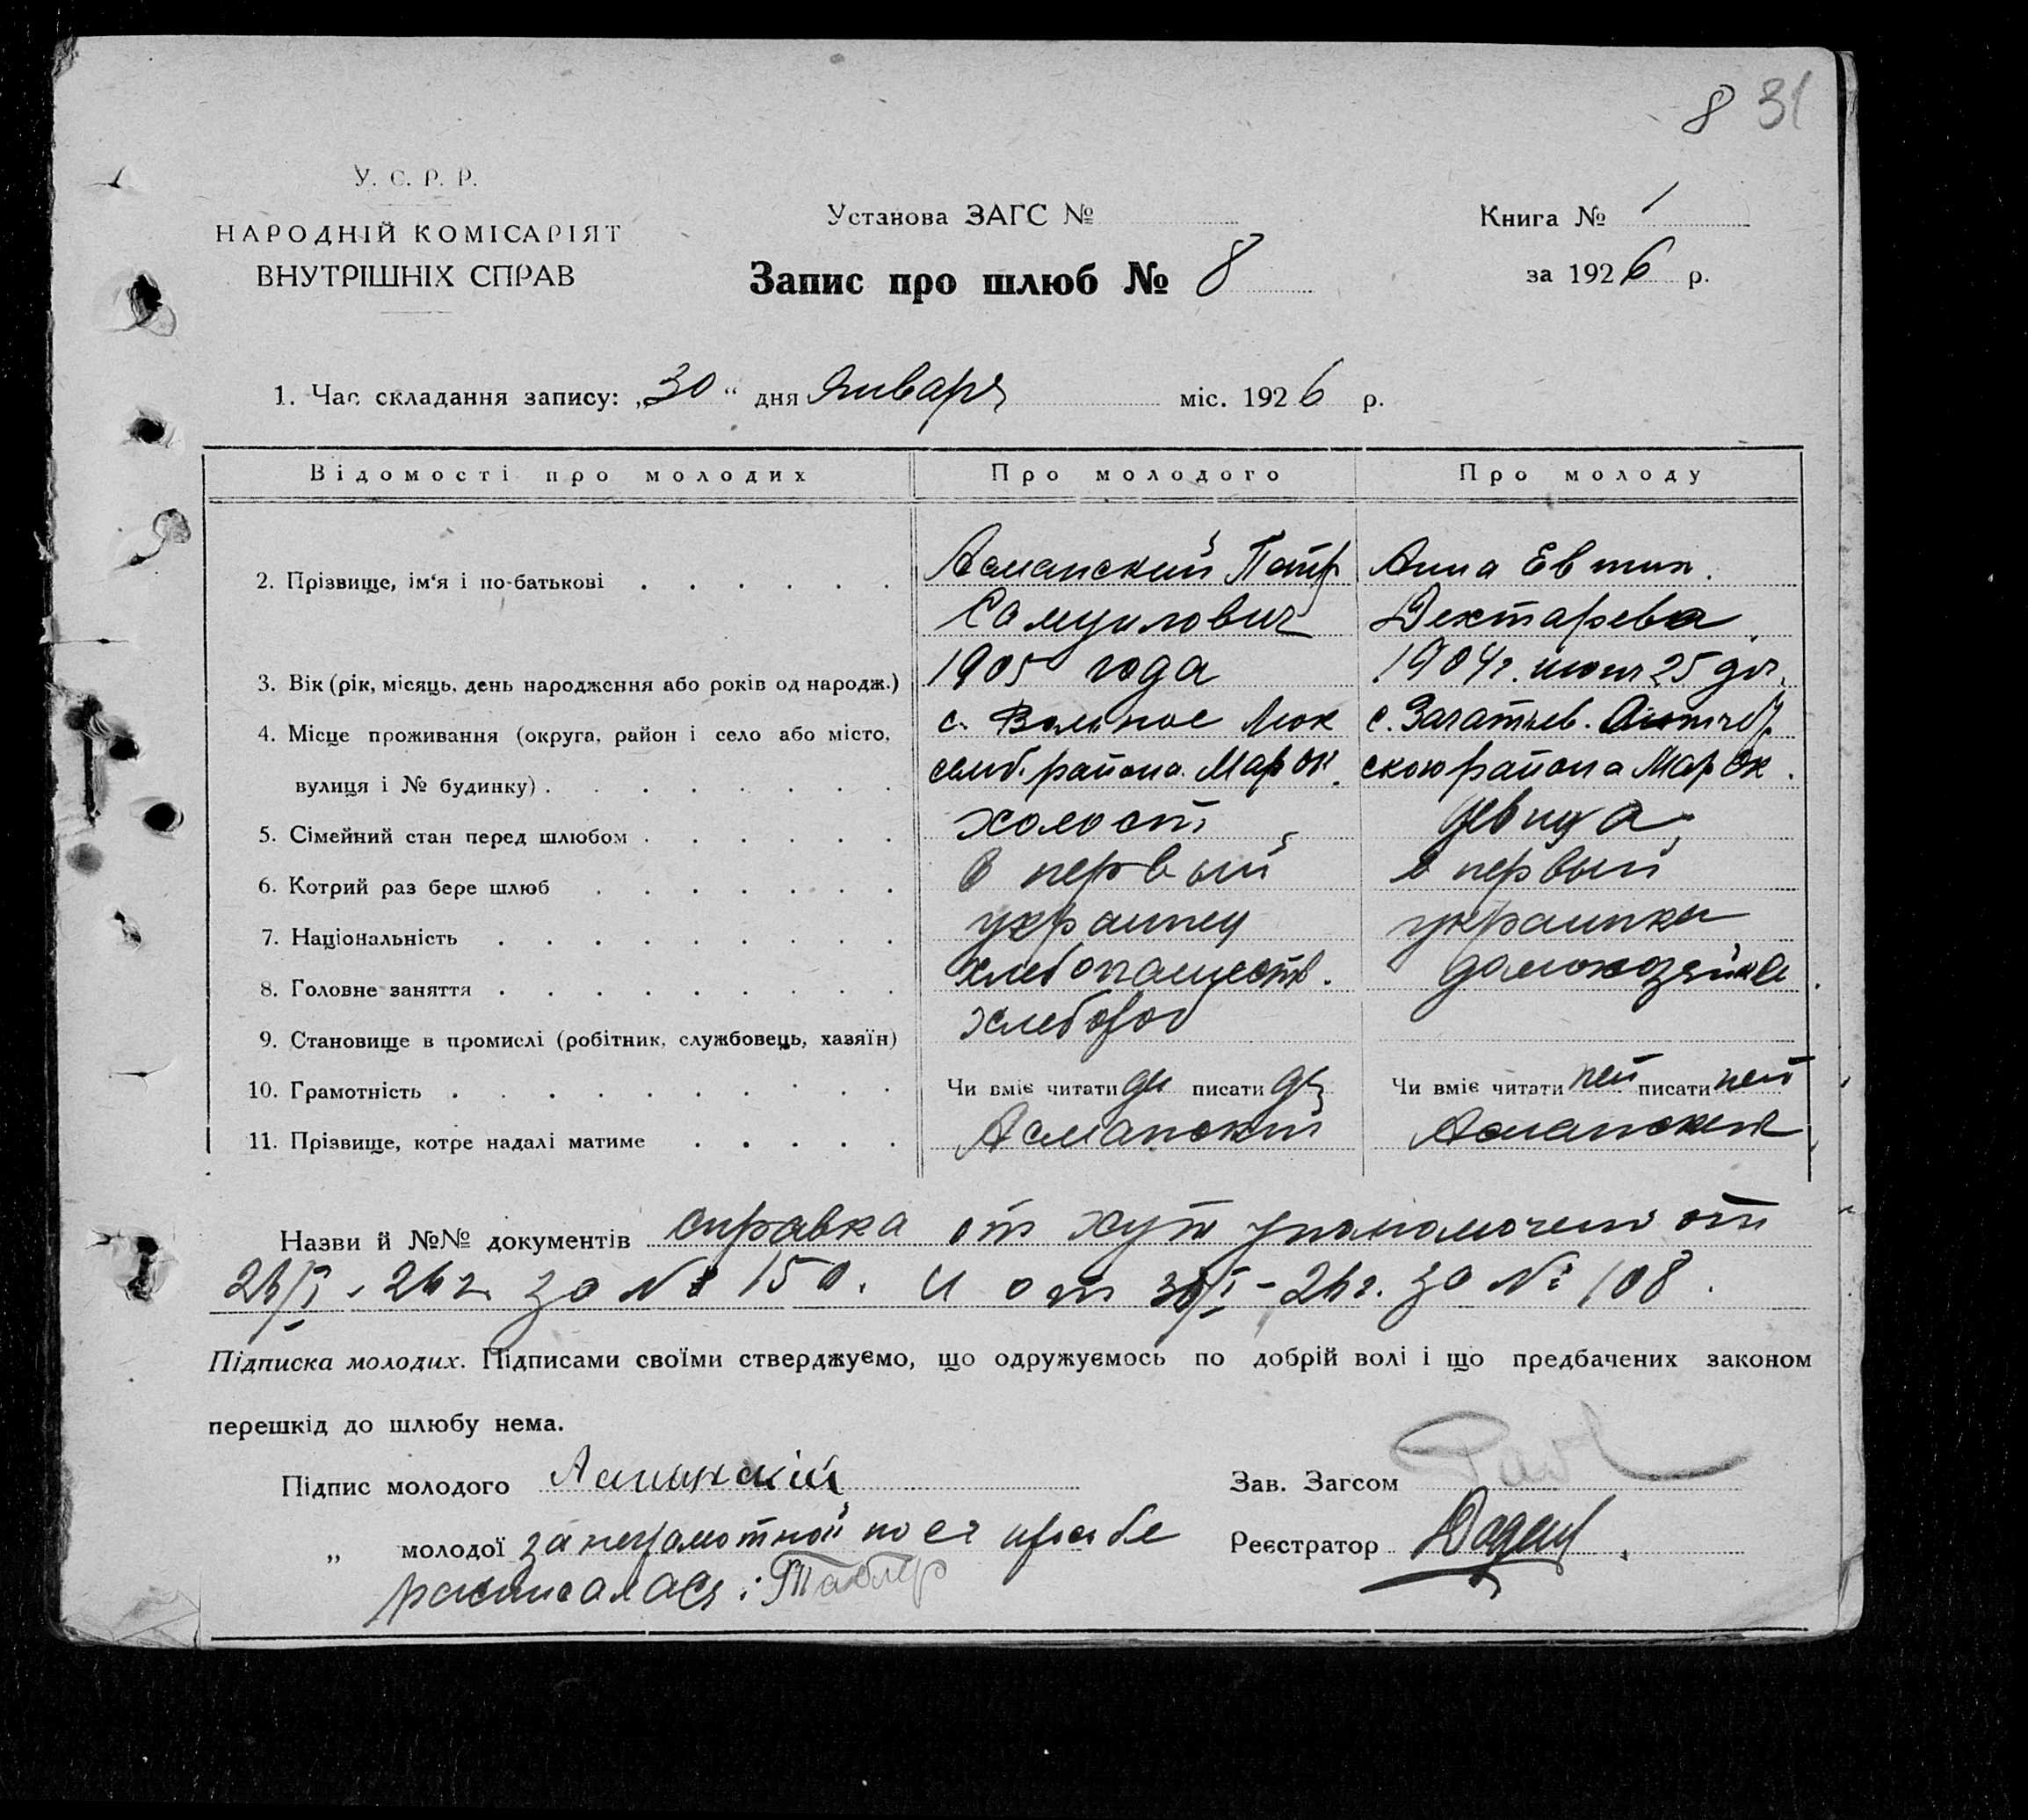 8 31
У. С. Р. Р.
НАРОДНІЙ КОМІСАРІЯТ
ВНУТРІШНІХ СПРАВ
Установа ЗАГС №
Запис про шлюб № 8
Книга № 1
за 1926 р.
1. Час складання запису: „30“ дня Января міс. 1926 р.
Відомості про молодих Про молодого Про молоду
2. Прізвище, ім‘я і по-батькові Асманский Петр Анна Евтих.
Самуилович Дехтарева
3. Вік (рік, місяць, день народження або років од народж.) 1905 года 1904 г. июня 25 дн.
4. Місце проживання (округа, район і село або місто, с. Вольное Люк с. Зачатьев.
вулиця і № будинку) семб. района Мар Ок. ского района Мар Ок.
5. Сімейний стан перед шлюбом холост девица
6. Котрий раз бере шлюб в первый в первый
7. Національність украинец украинка
8. Головне заняття хлебопашеств. домохозяйка
9. Становище в промислі (робітник, службовець, хазяїн) хлебороб
10. Грамотність Чи вміє читати да писати да Чи вміє читати нет писати нет
11. Прізвище, котре надалі матиме Асманский Асманская
Назви й №№ документів справка от хут уполномочен от
26/I - 26 г. за № 150. и от 30/I - 26 г. за № 108.
Підписка молодих. Підписами своїми стверджуємо, що одружуємось по добрій волі і що предбачених законом
перешкід до шлюбу нема.
Підпис молодого Асманский
Зав. Загсом
„ молодої за неграмотной по ея просьбе
расписалася:
Реєстратор